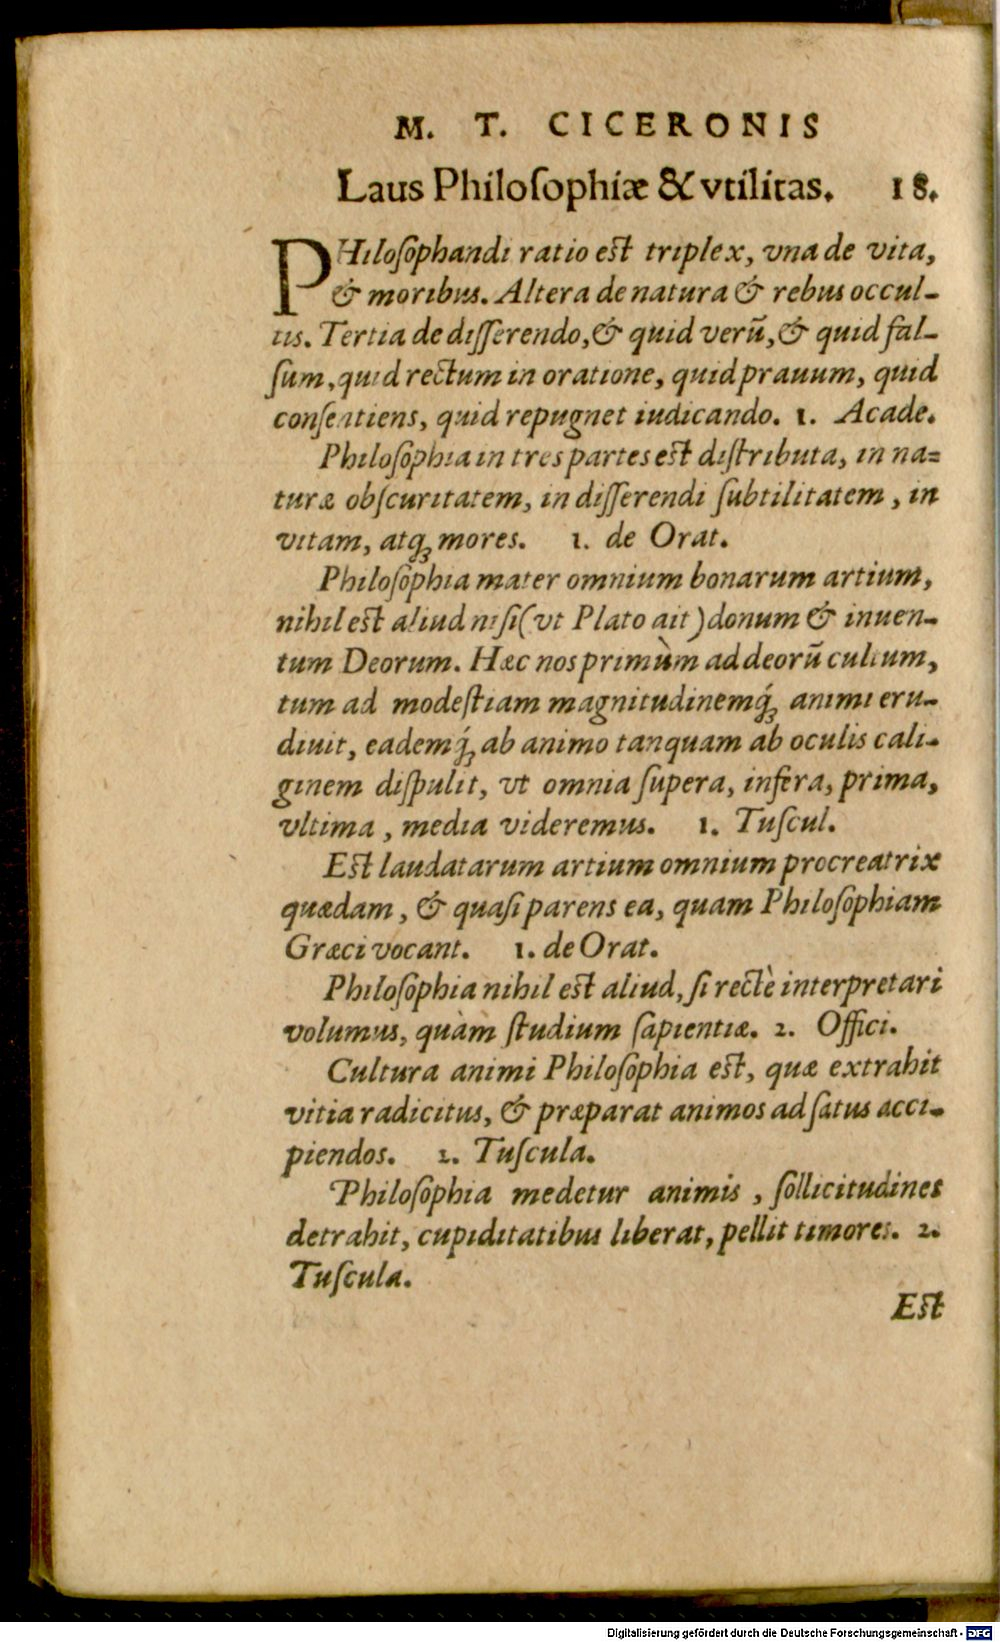 M. T. CICERONIS
Laus Philoſophiæ & vtilitas. 18.
PHiloſophandi ratio est triplex, vna de vita,
& moribus. Altera de natura & rebus occul-
tis. Tertia de diſſerendo, & quid verũ, & quid fal-
ſum, quid rectum in oratione, quid prauum, quid
conſentiens, quid repugnet iudicando. 1. Acade.
Philoſophia in tres partes est diſtributa, in na=
turæ obſcuritatem, in diſſerendi ſubtilitatem, in
vitam, atq; mores. 1. de Orat.
Philoſophia mater omnium bonarum artium,
nihil est aliud niſi (vt Plato ait) donum & inuen-
tum Deorum. Hæc nos primùm ad deorũ cultum,
tum ad modeſtiam magnitudinemq́; animi eru-
diuit, eademq́; ab animo tanquam ab oculis cali-
ginem diſpulit, vt omnia ſupera, infera, prima,
vltima, media videremus. 1. Tuſcul.
Est laudatarum artium omnium procreatrix
quædam, & quaſi parens ea, quam Philoſophiam
Græci vocant. 1. de Orat.
Philoſophia nihil est aliud, ſi rectè interpretari
volumus, quàm ſtudium ſapientiæ. 2. Offici.
Cultura animi Philoſophia est, quæ extrahit
vitia radicitus, & præparat animos ad ſatus acci-
piendos. 2. Tuſcula.
Philoſophia medetur animis, ſollicitudines
detrahit, cupiditatibus liberat, pellit timores. 2.
Tuſcula.
Est
Digitalisierung gefördert durch die Deutsche Forschungsgemeinschaft - DFG